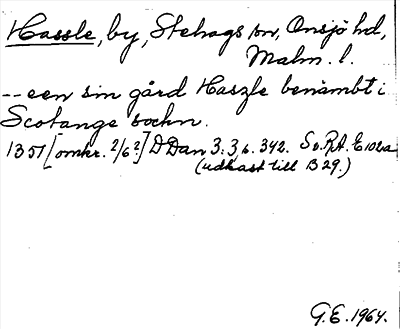 Hassle, by, Stehags sn, Onsjö hd,
Malm. l.
-- een sin gård Haszle benämbt i
Scotange sochn.
1351 [omkr. 2/6?] D Dan 3:3 s. 342. Sv. RA. E 102a
(udkast till B 29.)
G.E. 1964.